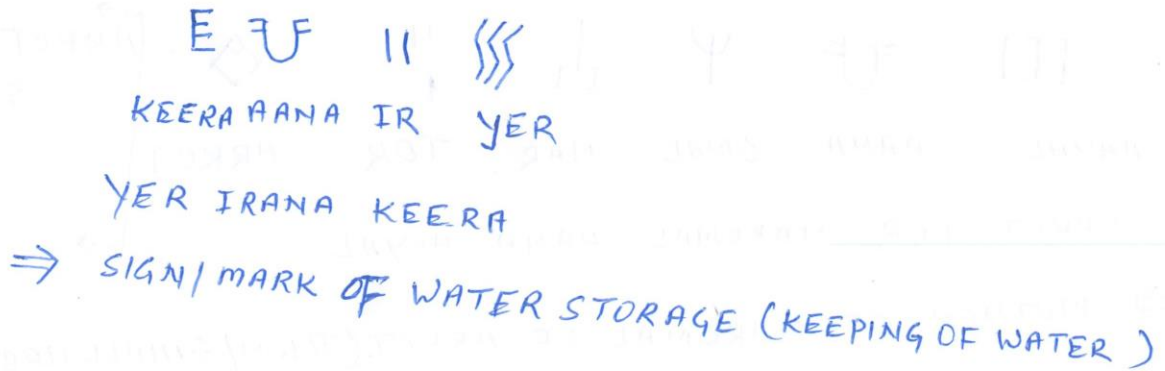 KEERA AANA IR YER
YER IRANA KEERA
⇒ SIGN/MARK OF WATER STORAGE (KEEPING OF WATER)